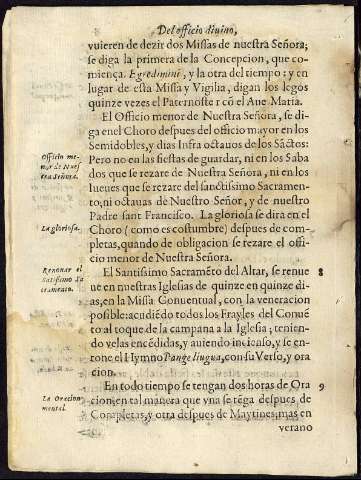 Del officio diuino,
vuieren de dezir dos Missas de nuestra Señora;
se diga la primera de la Concepcion, que co-
miença. Egredimini, y la otra del tiempo: y en
lugar de esta Missa y Vigilia, digan los legos
quinze vezes el Paternoster cõ el Aue Maria.
El Officio menor de Nuestra Señora, se di
ga en el Choro despues del officio mayor en los
Semidobles, y dias Infra octauos de los Sãctos:
Officio me-
nor de Nues
tra Señora.
Pero no en las fiestas de guardar, ni en los Saba
dos que se rezare de Nuestra Señora, ni en los
Iueues que se rezare del sanctissimo Sacramen-
to, ni octauas de Nuestro Señor, y de nuestro
Padre sant Francisco. La gloriosa se dira en el
La gloriosa.
Choro (como es costumbre) despues de com-
pletas, quando de obligacion se rezare el offi-
cio menor de Nuestra Señora.
Renouar el
Sãtissimo Sa
cramento.
El Santissimo Sacramẽto del Altar, se renue
8
ue en nuestras Iglesias de quinze en quinze di-
as, en la Missa Conuentual, con la veneracion
possible: acudiẽdo todos los Frayles del Conuẽ
to al toque de la campana a la Iglesia; tenien-
do velas encẽdidas, y auiendo incienso, y se en-
tone el Hymno Pange lingua, con su Verso, y ora
cion.
En todo tiempo se tengan dos horas de Ora
9
La Oracion
mental.
cion; en tal manera que vna se tẽga despues de
Completas, y otra despues de Maytines; mas en
verano